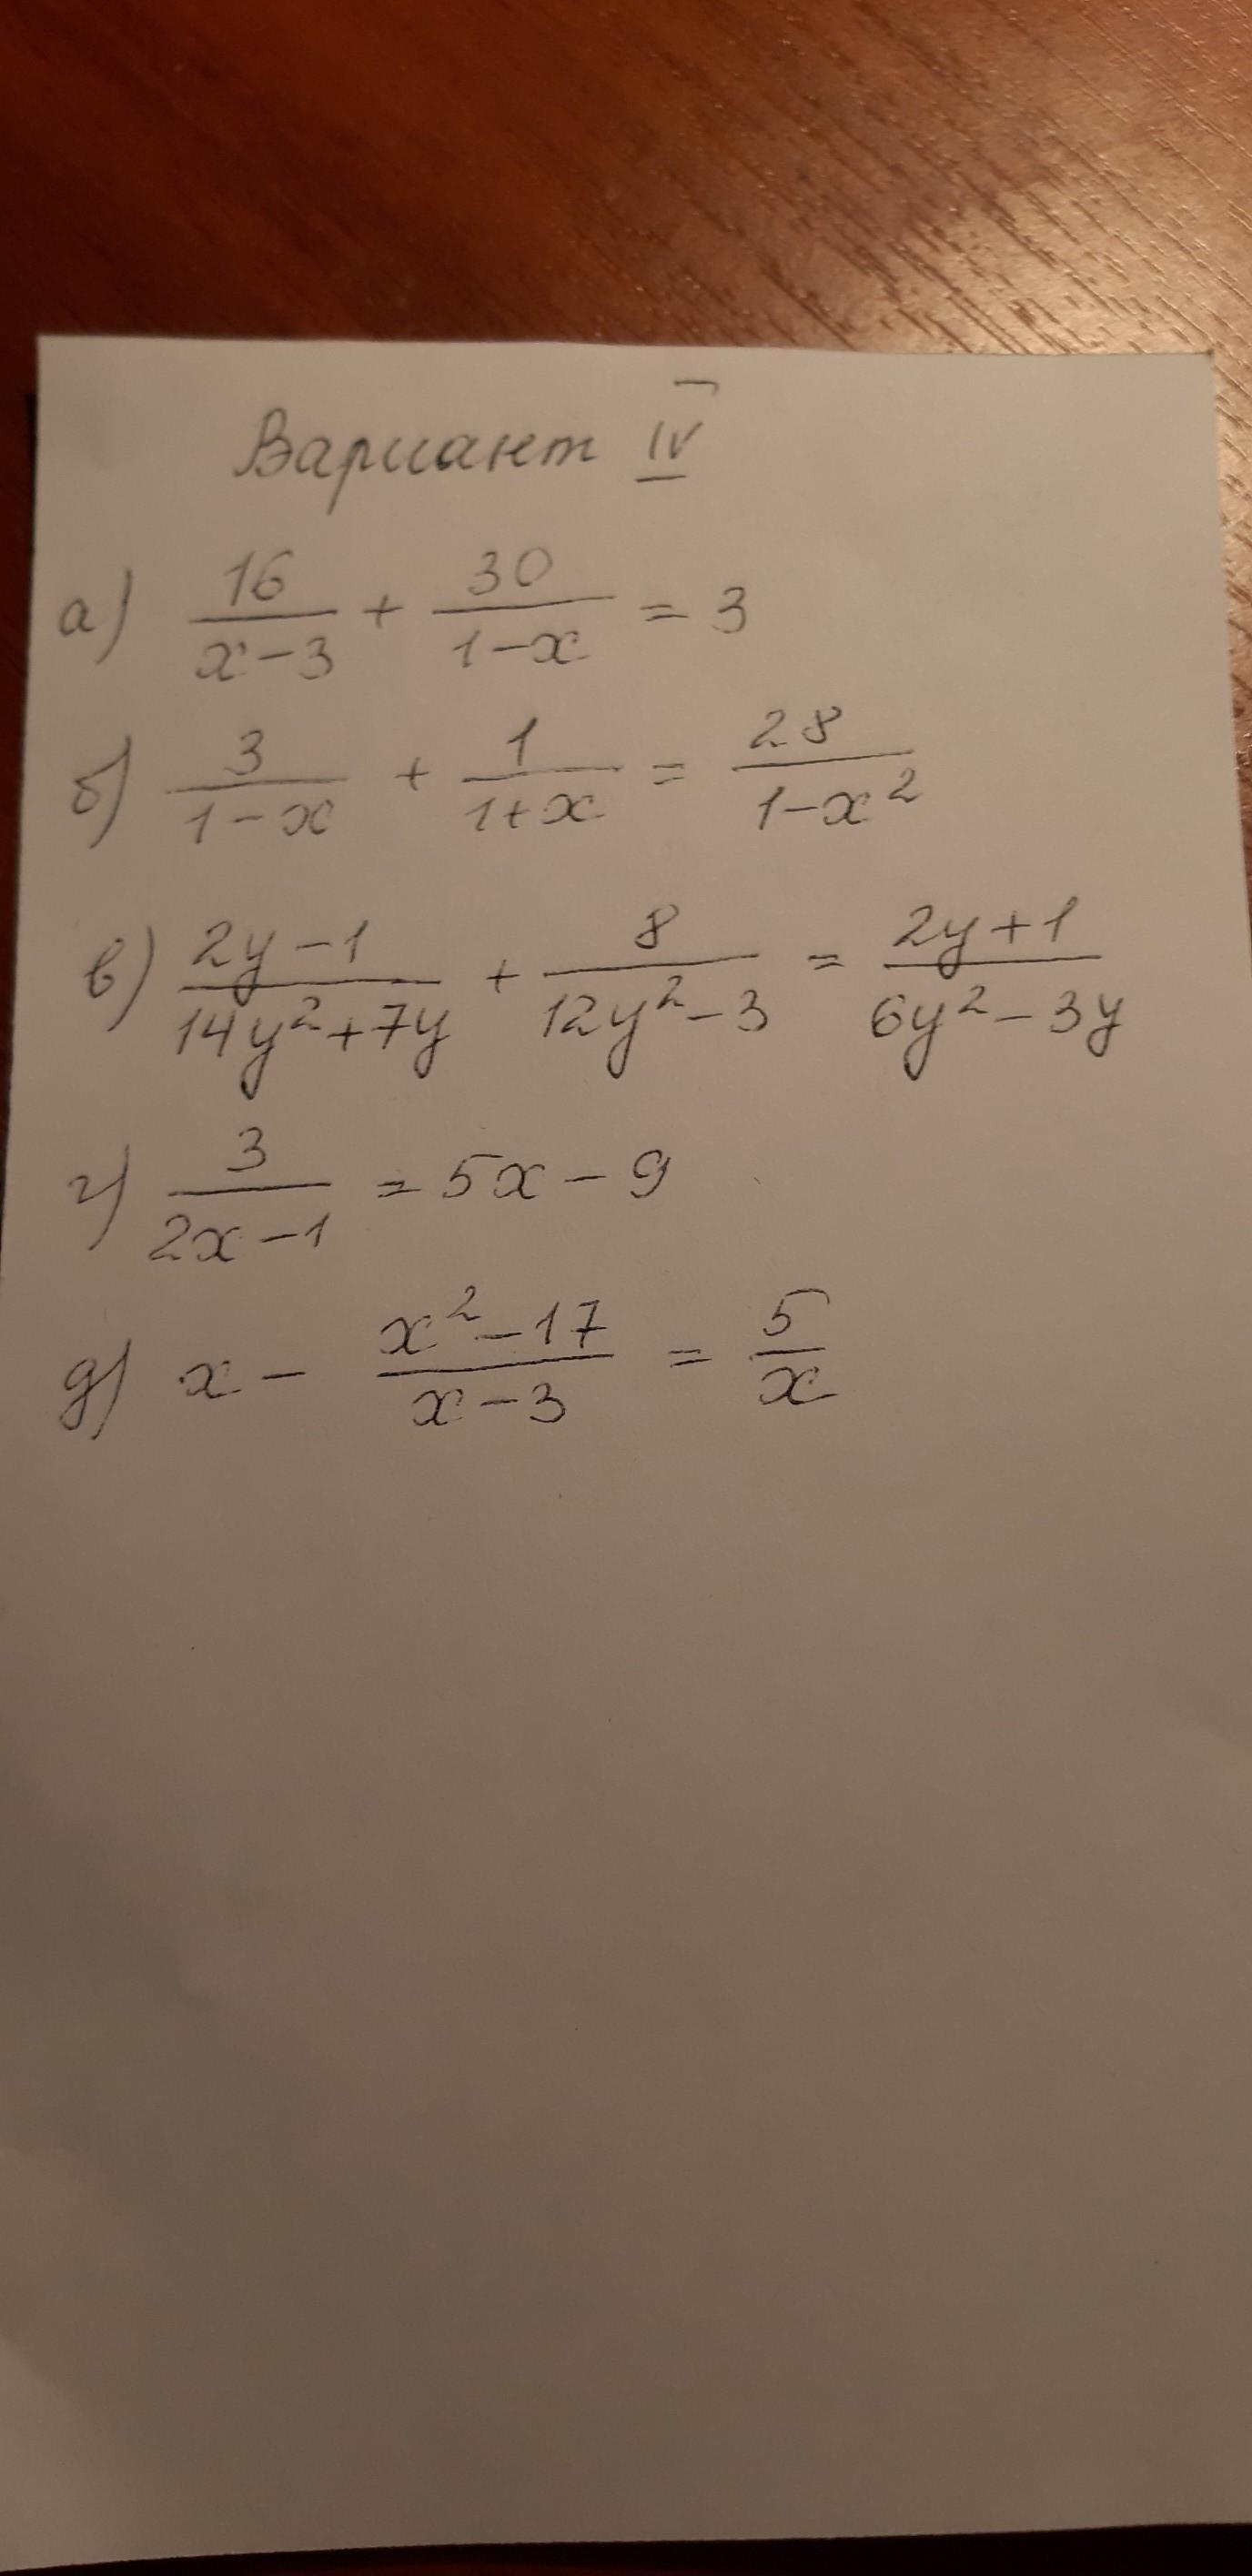 Вариант IV
а) 16/(x-3) + 30/(1-x) = 3
б) 3/(1-x) + 1/(1+x) = 28/(1-x²)
в) (2y-1)/(14y²+7y) + 8/(12y²-3) = (2y+1)/(6y²-3y)
г) 3/(2x-1) = 5x-9
д) x - (x²-17)/(x-3) = 5/x